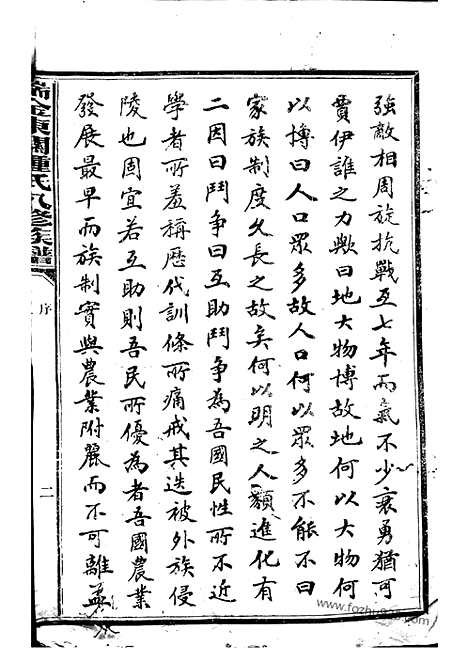 強敵相周旋抗戰互七年而氣不少衰勇猶可
賈伊誰之力歟曰地大物博故地何以大物何
以博曰人口眾多故人口何以眾多不能不曰
家族制度久長之故矣何以明之人類進化有
二因曰鬥爭曰互助鬥爭為吾國民性所不近
學者所羞稱歷代訓條所痛戒其迭被外族侵
陵也固宜若互助則吾民所優為者吾國農業
發展最早而族制實與農業附麗而不可離益
瑞金東關鍾氏八修族譜
序
二
www.fozhu920.com